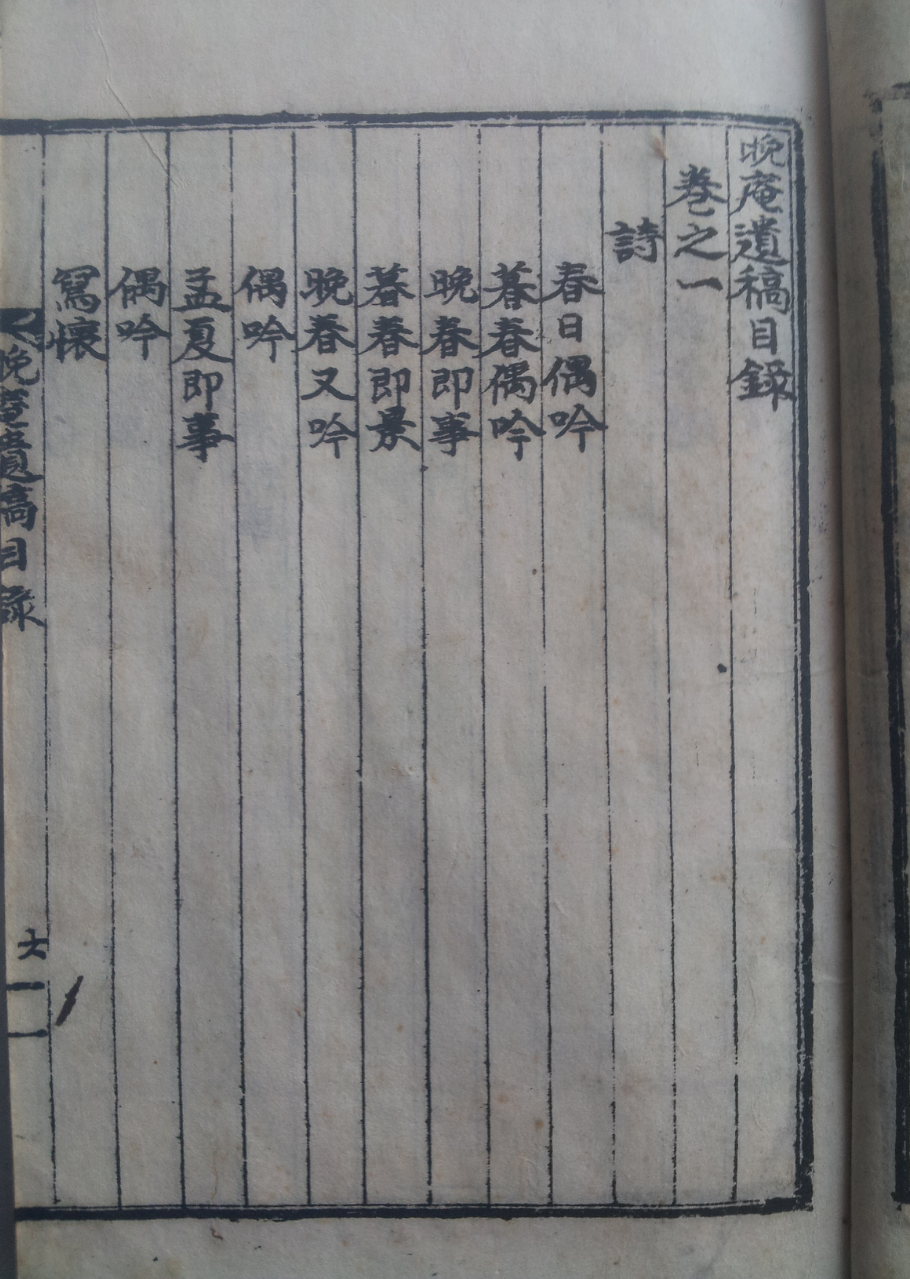 晚庵遺稿目錄
卷之一
詩
春日偶吟
暮春偶吟
晚春即事
暮春即景
晚春又吟
偶吟
孟夏即事
偶吟
寫懷
晚庵遺稿目錄